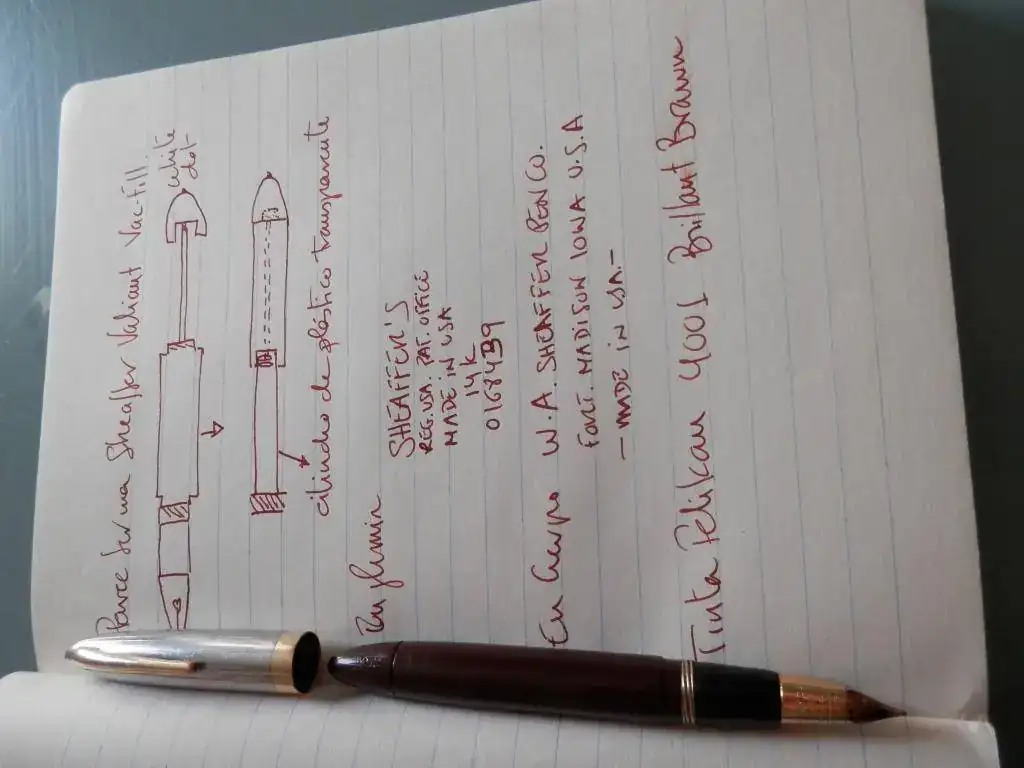 Parece ser una Sheaffer Valiant Vac-Fill.
white
dot-
cilindro de plástico transparente
En plumin
SHEAFFER'S
REG. USA. PAT. OFFICE
MADE IN USA
14K
0168439
En Cuerpo W.A. SHEAFFER PEN CO.
FORT. MADISON IOWA U.S.A
- MADE IN USA.-
Tinta Pelikan 4001 Brillant Brawn